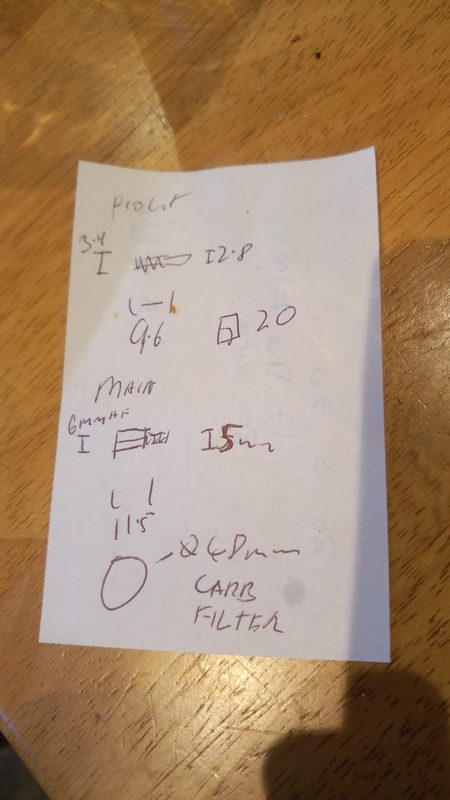 PIOLIT
3.4
I I 2.8
9.6 20
MAIN
6MMAF
I I 5mm
11.5
48mm
CARB
FILTER